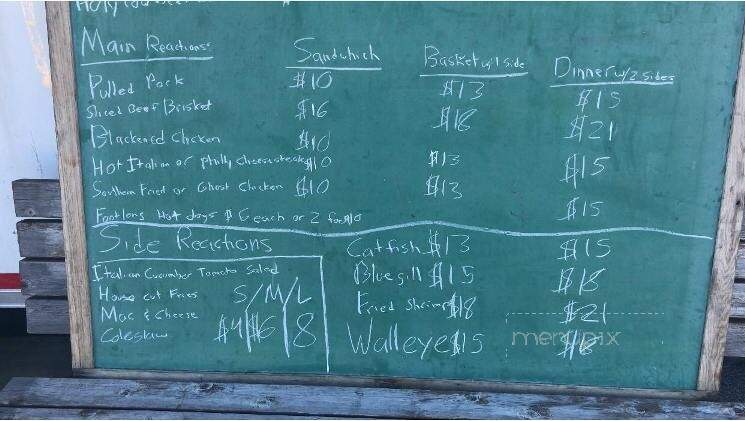 Main Reactions:
Sandwhich
Basket w/1 side
Dinner w/2 sides
Pulled Pork $10 $13 $15
Sliced Beef Brisket $16 $18 $21
Blackened Chicken $10
Hot Italian or philly cheesesteak $10 $13 $15
Southern Fried or Ghost Chicken $10 $13 $15
Footlong Hot dogs $6 each or 2 for $10
Side Reactions
Italian Cucumber Tomato Salad
House cut Fries S/M/L
Mac & Cheese
Coleslaw $4/$6/8
Catfish $13 $15
Bluegill $15 $18
Fried Shrimp $18 $21
Walleye $15 $18
menupix